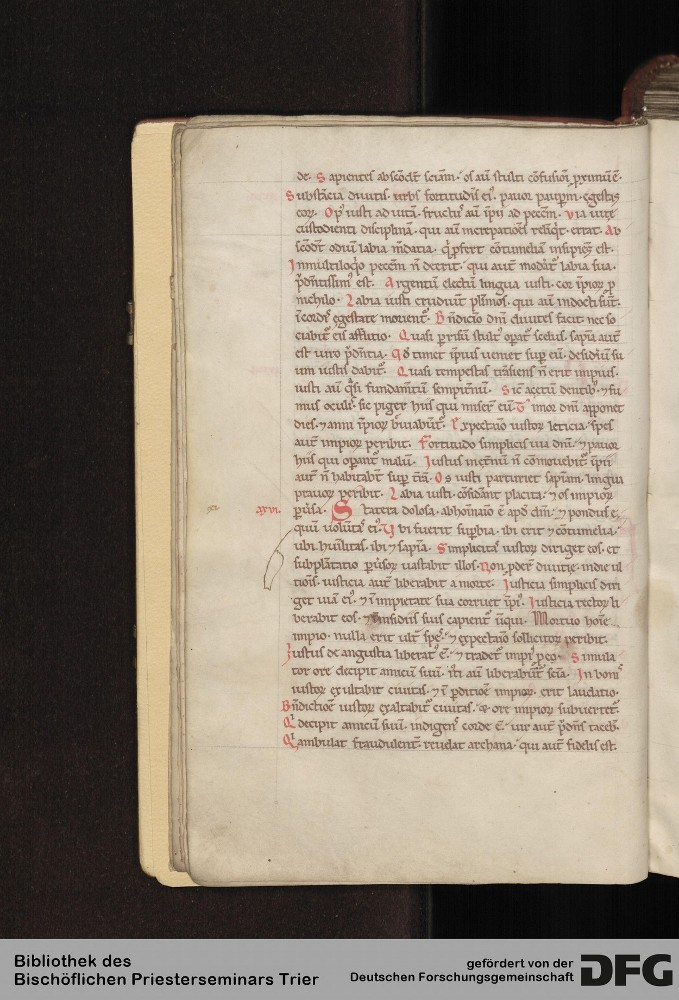 de. Sapientes absco͂dt͂ scia͂m. os au͂ stulti co͂fusioi͂ p̱ximu͂ e͂.
Substa͂cia diuitis. urbs fortitudis͂ ei᷒. pauor paup̱m͂. egestas
eor͂. Op᷒ iusti ad uita͂. fruct᷒ au͂ ip̄ii ad pecc͂m. Via uite
custodienti disciplina͂. qui au͂ increpatioe͂s reli͂qt. errat. Ab
sco͂dt͂ odiu͂ labia m͂datia. qͥ p̱fert co͂tumelia͂ insipie͂s est.
In multiloqͥo pecc͂m n͂ deerit. qui aut͂ modat͂ labia sua.
p͂de͂tissim᷒ est. Argentu͂ electu͂ lingua iusti. cor ip̄ior͂ p̱
nichilo. Labia iusti erudiu͂t pl͂imos. qui au͂ indocti su͂t.
i͂ cordis egestate morient͂. B͂ndicio dn͂i diuites facit. nec so
ciabit͂ eis afflictio. Quasi p̱ risu͂ stult᷒ opat͂ scelus. sapi͂a aut͂
est uiro p͂de͂tia. Q͂d timet ip̄ius ueniet sup̱ eu͂. desid͂iu͂ su
um iustis dabit͂. Quasi tempestas tra͂siens n͂ erit impius.
iusti au͂ q͂si fundam͂tu͂ sempit͂nu͂. Sic acetu͂ dentib᷒. ⁊ fu
mus oculis. sic piger hiis qui miser͂t eu͂. Timor dn͂i apponet
dies. ⁊ anni ip̄ior͂ b͂uiabu͂t͂. Expectatio iustor͂ leticia. spes
aut͂ impior͂ peribit. Fortitudo simplicis uia dn͂i. ⁊ pauor
hiis qui opant͂ malu͂. Iustus i͂et͂nu͂ n͂ co͂mouebit͂. ip̄ii
aut͂ n͂ habitabu͂t sup̱ t͂ra͂. Os iusti parturiet sapia͂m. lingua
prauor͂ peribit. Labia iusti co͂sid͂ant placita. ⁊ os impior͂
xxvi. p̱u͂sa. Statera dolosa. abho͂natio e͂ apd͂ dm͂. ⁊ pondus e
quu͂ uolu͂tas ei᷒. Vbi fuerit sup̱bia. ibi erit ⁊ co͂tumelia.
ubi hu͂ilitas. ibi ⁊ sapi͂a. Simplicitas iustor͂ diriget eos. et
subpla͂tatio p̱u͂sor͂ uastabit illos. Non p̱der͂t diuitie. in die ul
tiois͂. iusticia aut͂ liberabit a morte. Iusticia simplicis diri
get uia͂ ei᷒. ⁊ i͂ impietate sua corruet ip̄i᷒. Iusticia rector͂ li
berabit eos. ⁊ in insidiis suis capient͂ iniqui. Mortuo hoi͂e
impio. nulla erit ult͂ spes. ⁊ expectatio sollicitor͂ peribit.
Iustus de angustia liberat᷒ e͂. ⁊ tradet͂ impi᷒ p̱ eo. Simula
tor ore decipit amicu͂ suu͂. i͂ti au͂ liberabu͂t͂ sci͂a. In bonis
iustor͂ exultabit ciuitas. ⁊ i͂ p̱ditioe͂ impior͂. erit laudatio.
B͂ndictioe͂ iustor͂ exaltabit͂ ciuitas. & ore impior͂ subuertet͂.
Qͥ decipit amicu͂ suu͂. indigens corde e͂. uir aut͂ p͂de͂s taceb͂.
Qͥ ambulat fraudulent͂. reuelat archana. qui aut͂ fidelis est.
Bibliothek des
Bischöflichen Priesterseminars Trier
gefördert von der
Deutschen Forschungsgemeinschaft DFG